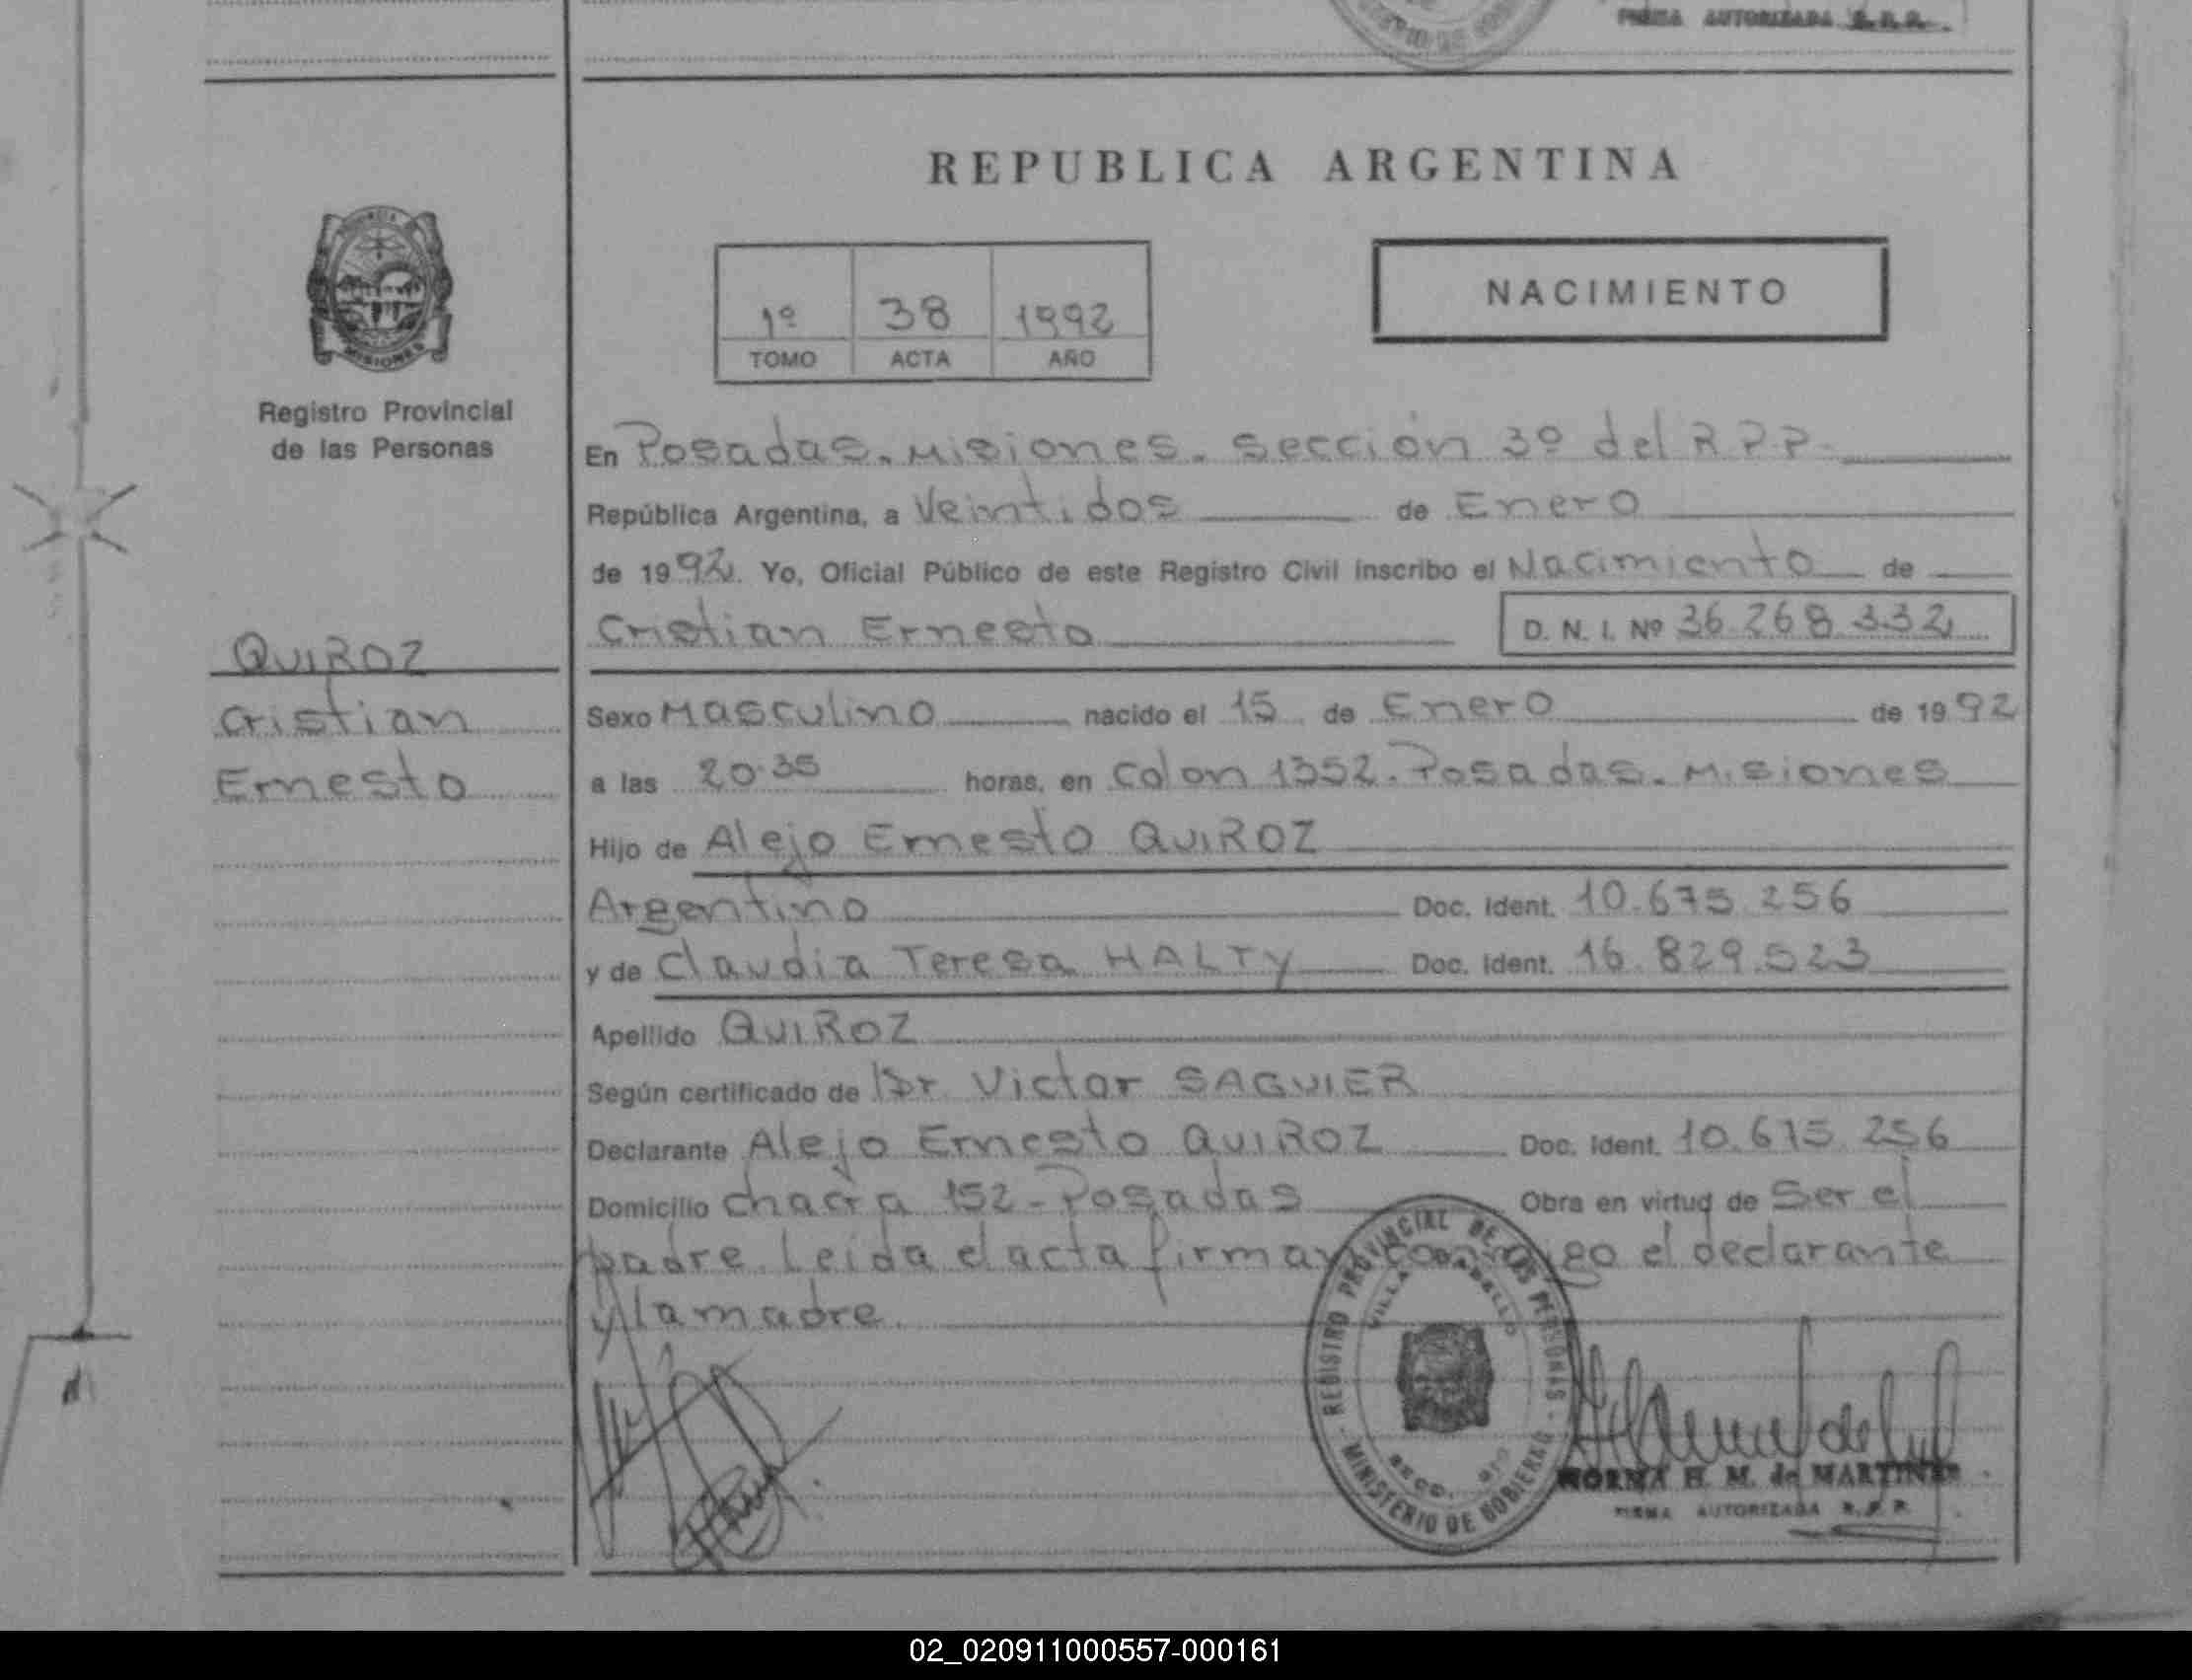 FIRMA AUTORIZADA R.P.P.
REPUBLICA ARGENTINA
MISIONES
Registro Provincial
de las Personas
1º 38 1992
TOMO ACTA AÑO
NACIMIENTO
En Posadas. Misiones. Sección 3º del R P P.
República Argentina, a Veintidos de Enero
de 1992. Yo, Oficial Público de este Registro Civil inscribo el Nacimiento de
Cristian Ernesto
D. N. I. Nº 36.268.332
QUIROZ
Cristian
Ernesto
Sexo Masculino nacido el 15 de Enero de 1992
a las 20.35 horas, en Colon 1352. Posadas. Misiones
Hijo de Alejo Ernesto QUIROZ
Argentino Doc. Ident. 10.675.256
y de Claudia Teresa HALTY Doc. Ident. 16.829.523
Apellido QUIROZ
Según certificado de Dr Victor SAGUIER
Declarante Alejo Ernesto QUIROZ Doc. Ident. 10.675.256
Domicilio chacra 152 - Posadas Obra en virtud de Ser el
padre. Leida el acta firman conmigo el declarante
y la madre.
REGISTRO PROVINCIAL DE LAS PERSONAS
MINISTERIO DE GOBIERNO
VILLA CABELLO
NORMA H. M. de MARTINEZ
FIRMA AUTORIZADA R.P.P.
02_020911000557-000161